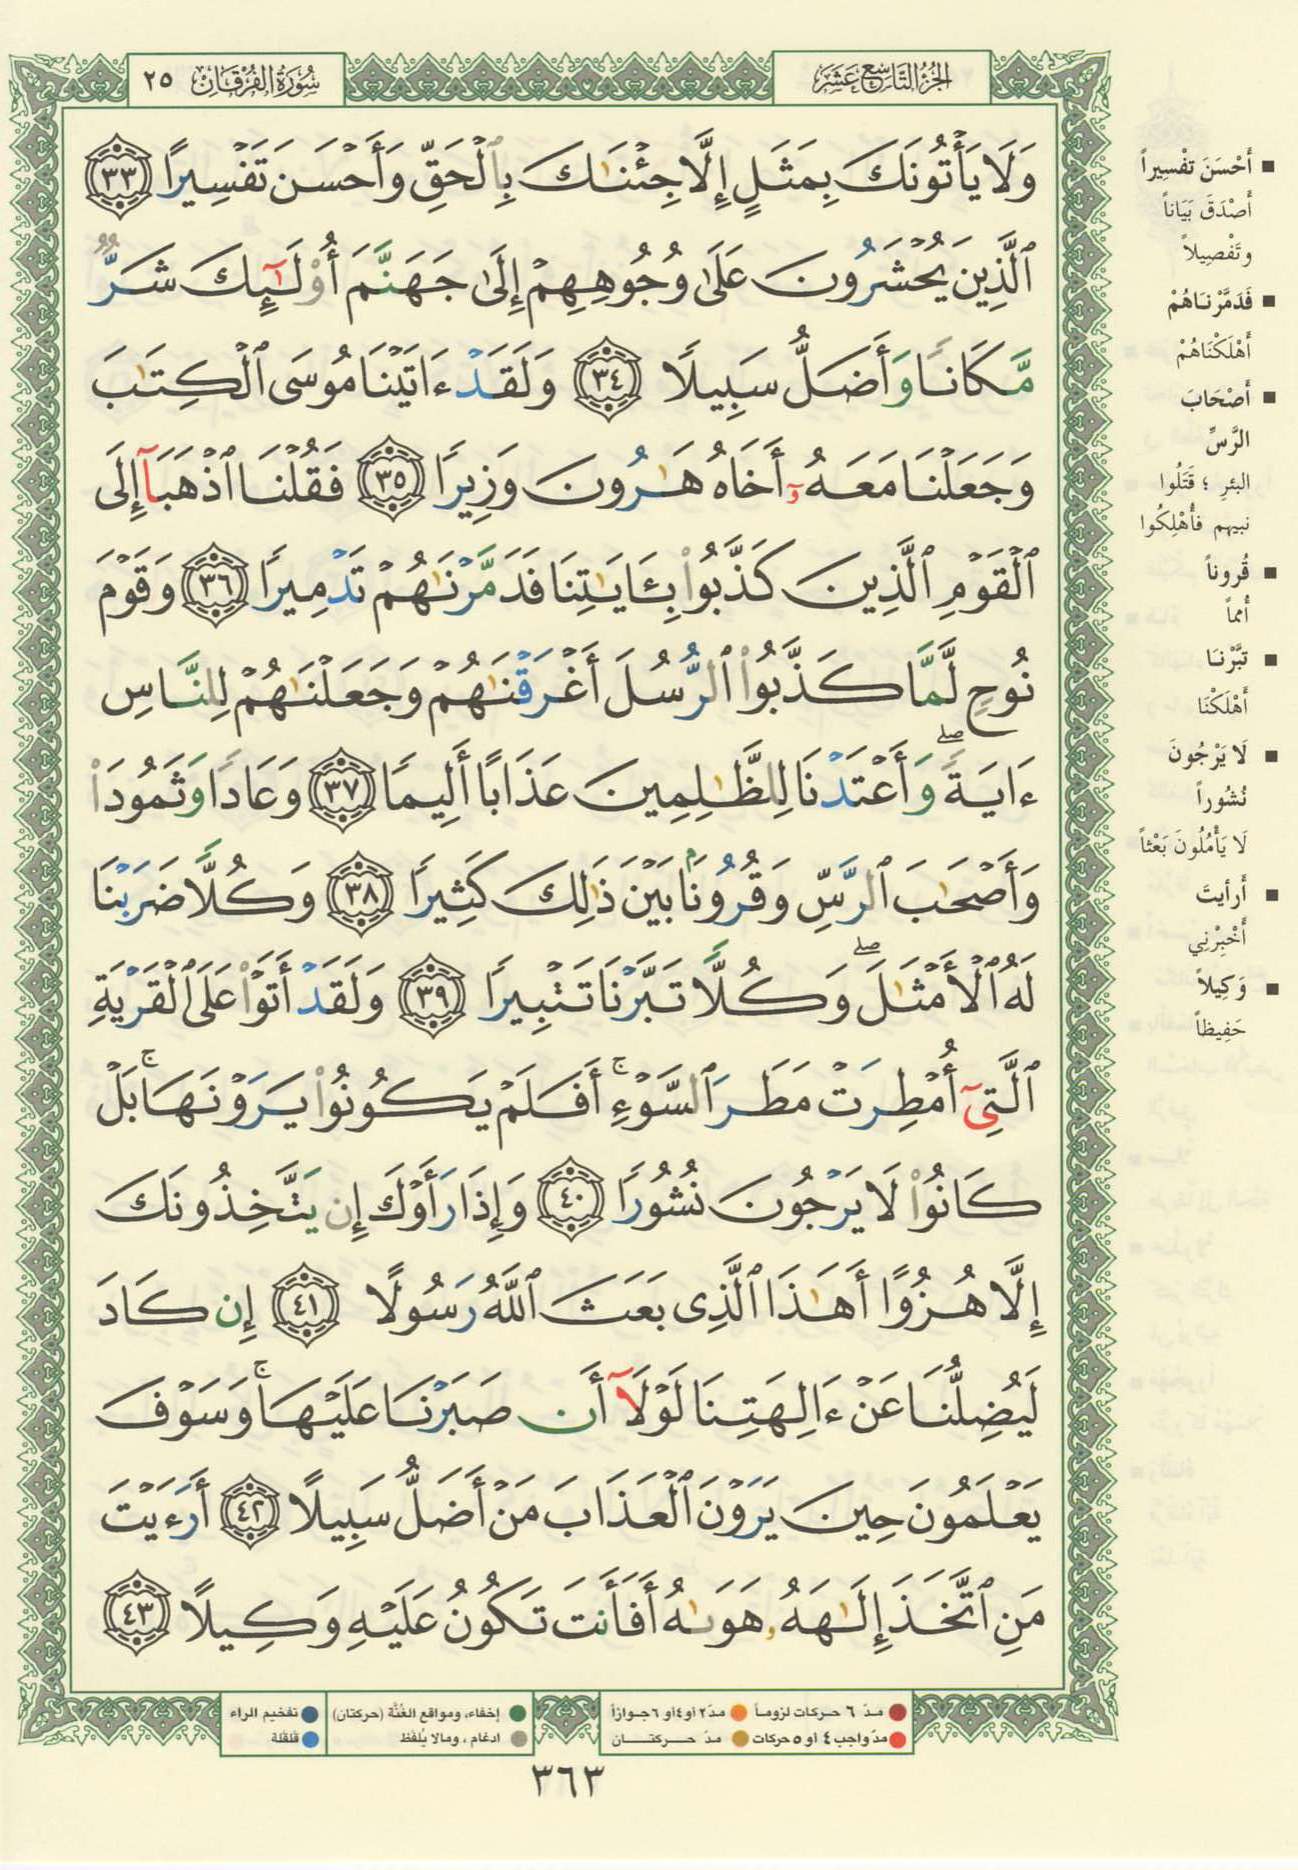 الجزء التاسع عشر
سورة الفرقان ٢٥
وَلَا يَأْتُونَكَ بِمَثَلٍ إِلَّا جِئْنَٰكَ بِٱلْحَقِّ وَأَحْسَنَ تَفْسِيرًا ٣٣
ٱلَّذِينَ يُحْشَرُونَ عَلَىٰ وُجُوهِهِمْ إِلَىٰ جَهَنَّمَ أُو۟لَٰٓئِكَ شَرٌّ
مَّكَانًا وَأَضَلُّ سَبِيلًا ٣٤ وَلَقَدْ ءَاتَيْنَا مُوسَى ٱلْكِتَٰبَ
وَجَعَلْنَا مَعَهُۥٓ أَخَاهُ هَٰرُونَ وَزِيرًا ٣٥ فَقُلْنَا ٱذْهَبَآ إِلَى
ٱلْقَوْمِ ٱلَّذِينَ كَذَّبُوا۟ بِـَٔايَٰتِنَا فَدَمَّرْنَٰهُمْ تَدْمِيرًا ٣٦ وَقَوْمَ
نُوحٍ لَّمَّا كَذَّبُوا۟ ٱلرُّسُلَ أَغْرَقْنَٰهُمْ وَجَعَلْنَٰهُمْ لِلنَّاسِ
ءَايَةً ۖ وَأَعْتَدْنَا لِلظَّٰلِمِينَ عَذَابًا أَلِيمًا ٣٧ وَعَادًا وَثَمُودَا۟
وَأَصْحَٰبَ ٱلرَّسِّ وَقُرُونًۢا بَيْنَ ذَٰلِكَ كَثِيرًا ٣٨ وَكُلًّا ضَرَبْنَا
لَهُ ٱلْأَمْثَٰلَ ۖ وَكُلًّا تَبَّرْنَا تَتْبِيرًا ٣٩ وَلَقَدْ أَتَوْا۟ عَلَى ٱلْقَرْيَةِ
ٱلَّتِىٓ أُمْطِرَتْ مَطَرَ ٱلسَّوْءِ ۚ أَفَلَمْ يَكُونُوا۟ يَرَوْنَهَا ۚ بَلْ
كَانُوا۟ لَا يَرْجُونَ نُشُورًا ٤٠ وَإِذَا رَأَوْكَ إِن يَتَّخِذُونَكَ
إِلَّا هُزُوًا أَهَٰذَا ٱلَّذِى بَعَثَ ٱللَّهُ رَسُولًا ٤١ إِن كَادَ
لَيُضِلُّنَا عَنْ ءَالِهَتِنَا لَوْلَآ أَن صَبَرْنَا عَلَيْهَا ۚ وَسَوْفَ
يَعْلَمُونَ حِينَ يَرَوْنَ ٱلْعَذَابَ مَنْ أَضَلُّ سَبِيلًا ٤٢ أَرَءَيْتَ
مَنِ ٱتَّخَذَ إِلَٰهَهُۥ هَوَىٰهُ أَفَأَنتَ تَكُونُ عَلَيْهِ وَكِيلًا ٤٣
■ أَحْسَنَ تفْسِيراً
أَصْدَقَ بَيَاناً
وتَفْصِيلاً
■ فَدَمَّرْنَاهُمْ
أَهْلَكْنَاهُمْ
■ أَصْحَابَ
الرَّسِّ
البئرِ ؛ قَتَلُوا
نبيهم فأُهْلِكُوا
■ قُروناً
أُمماً
■ تبَّرْنَا
أَهْلَكْنَا
■ لَا يَرْجُونَ
نُشُوراً
لَا يَأْمُلُونَ بَعْثاً
■ أَرأيتَ
أَخْبِرْنِي
■ وَكِيلاً
حَفِيظاً
مدّ ٦ حركات لزوماً مدّ ٢ أو ٤ أو ٦ جوازاً إخفاء، ومواقع الغُنَّة (حركتان) تفخيم الراء
مدّ واجب ٤ أو ٥ حركات مدّ حركتان ادغام، ومالا يُلفَظ قلقلة
٣٦٣